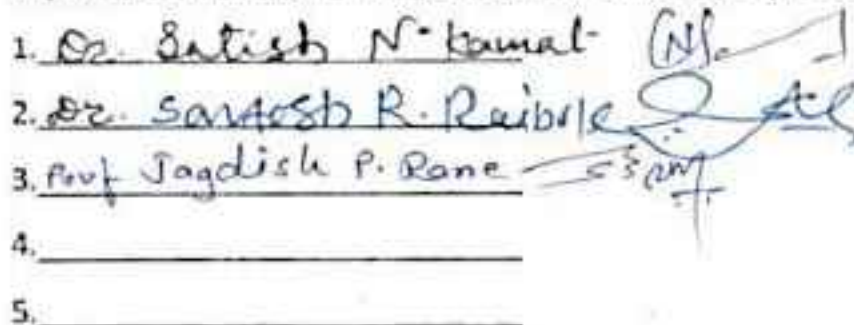 1. Dr. Satish N. Kamat
2. Dr. Santosh R. Raibole
3. Prof Jagdish P. Rane
4.
5.